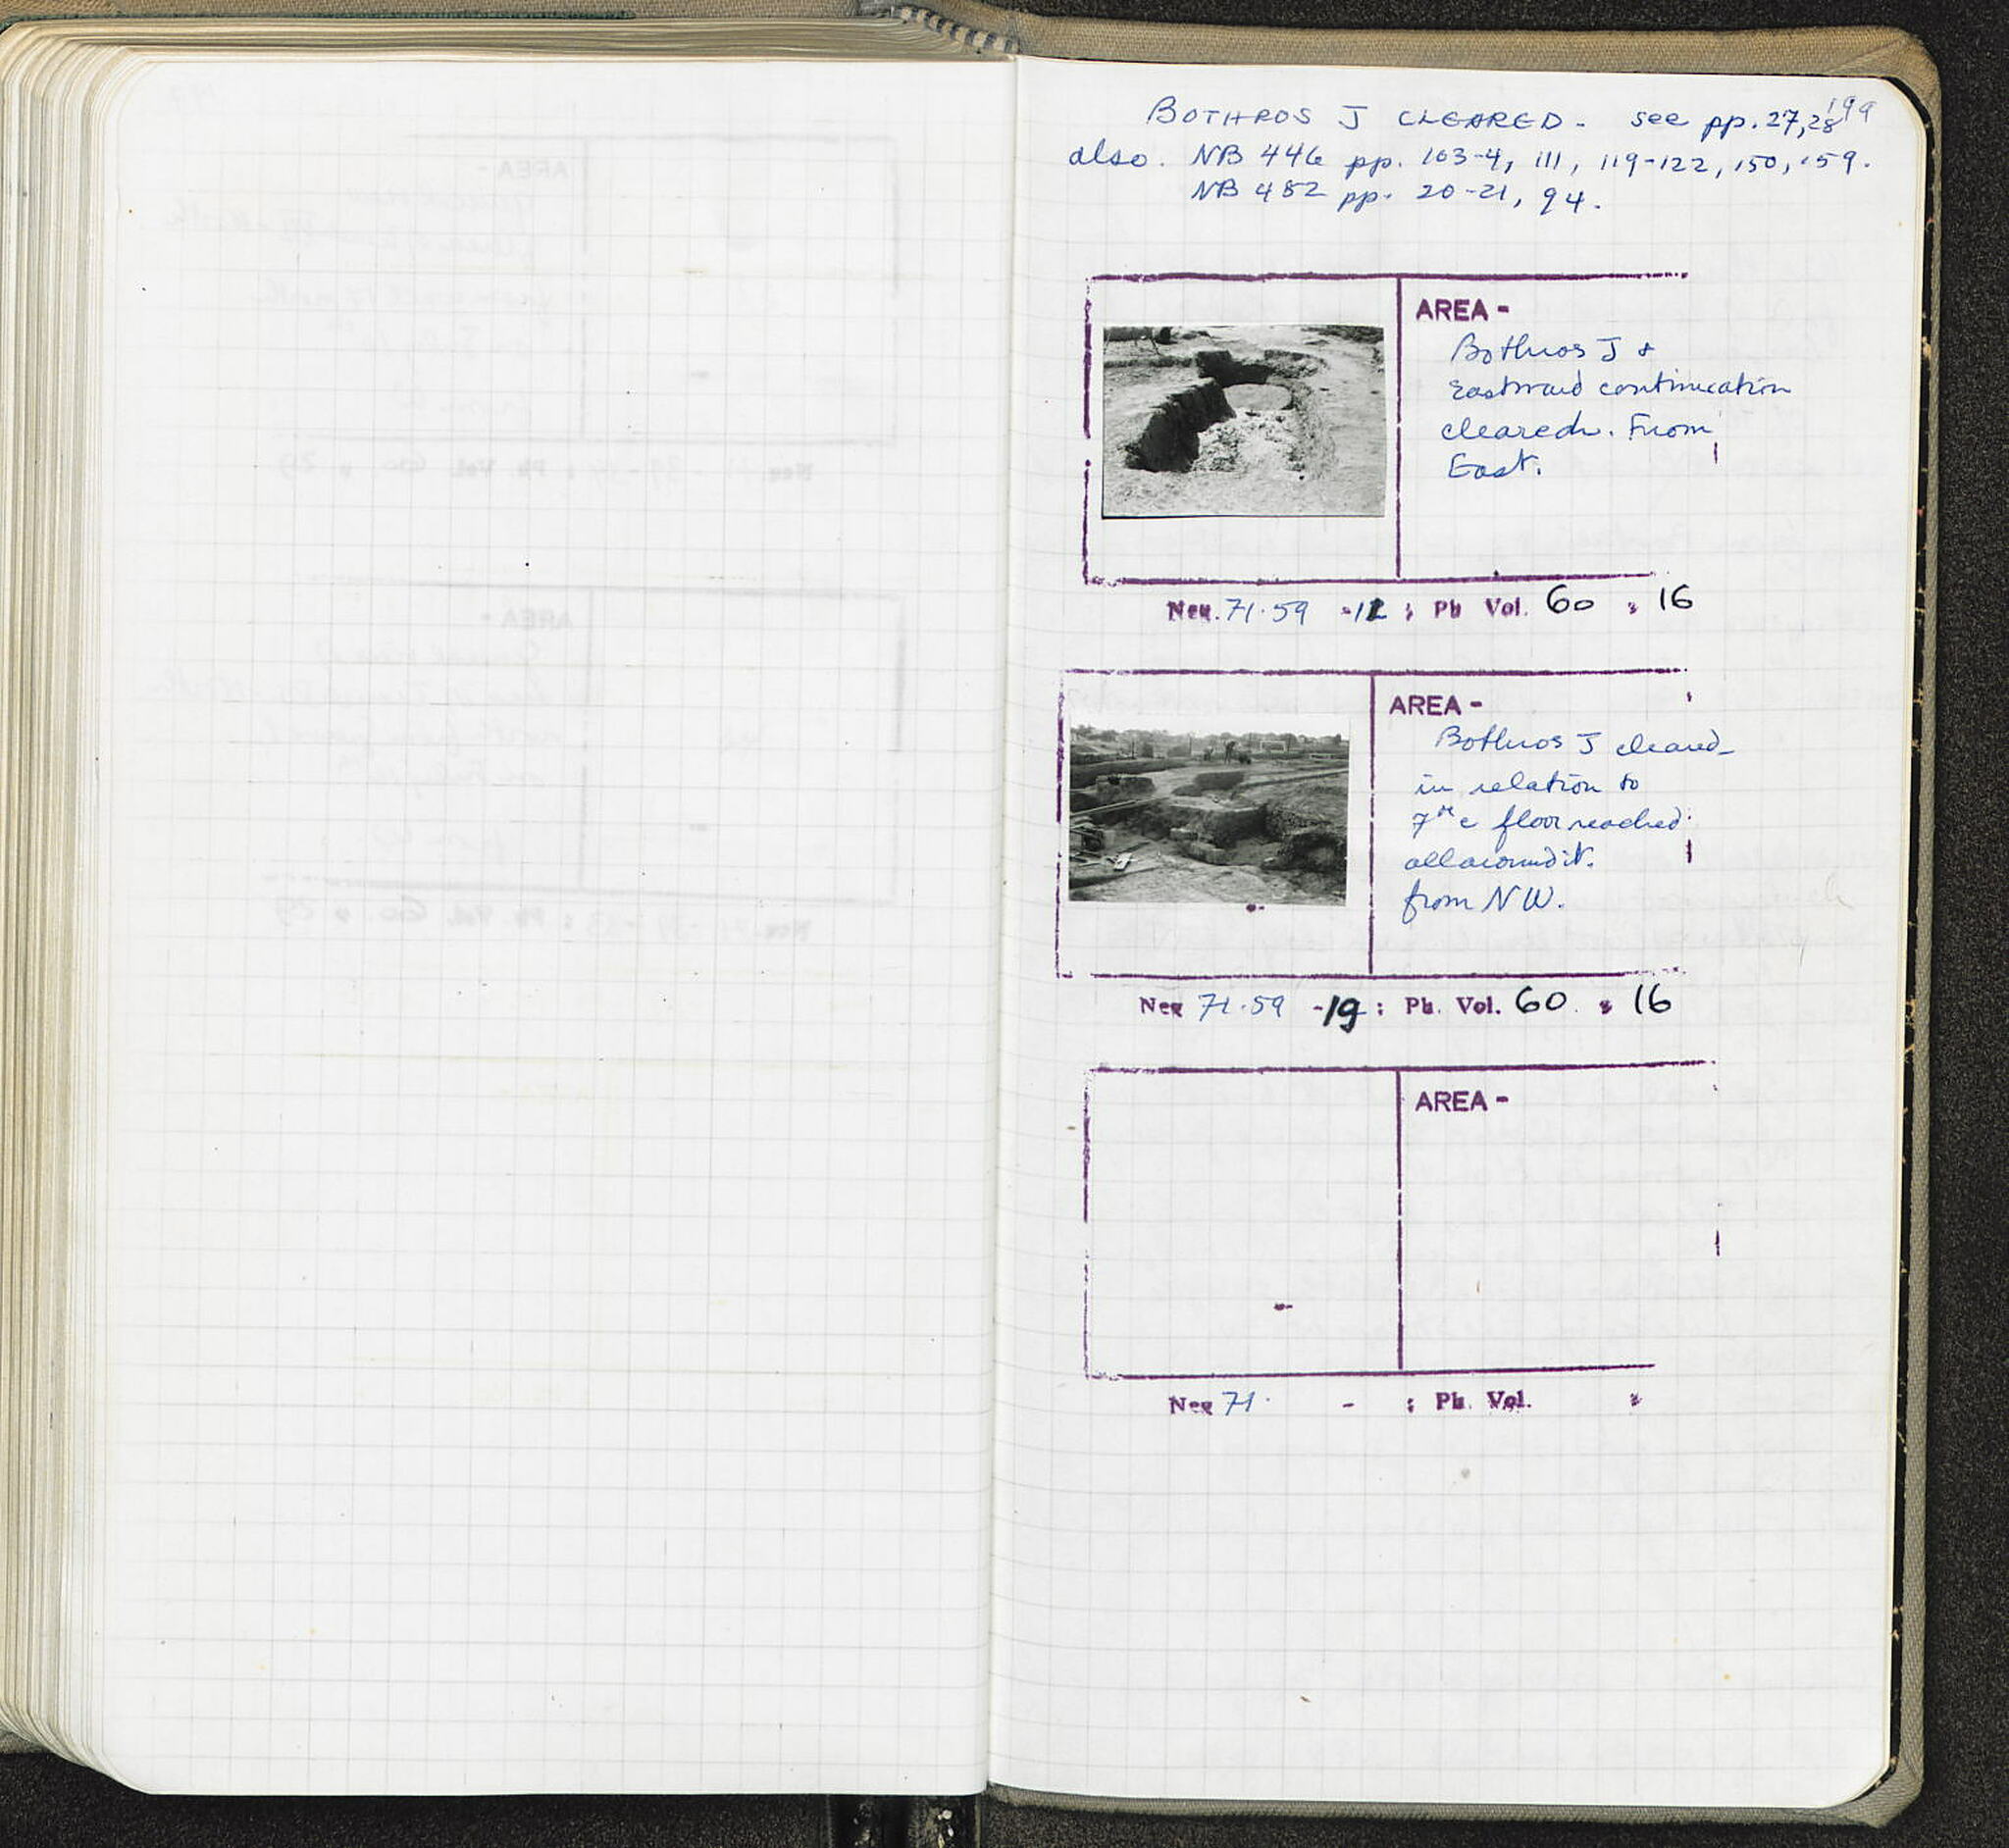 199
BOTHROS J CLEARED - see pp. 27, 28
also. NB 446 pp. 103-4, 111, 119-122, 150, 159.
NB 482 pp. 20-21, 94.
AREA -
Bothros J &
Eastward continuation
cleared. From
East.
Neg. 71·59 -12 ; Ph Vol. 60 : 16
AREA -
Bothros J cleared
in relation to
floor reached
all around it.
from NW.
Neg 71·59 -19 ; Ph. Vol. 60 : 16
AREA -
Neg 71· - ; Ph. Vol. :